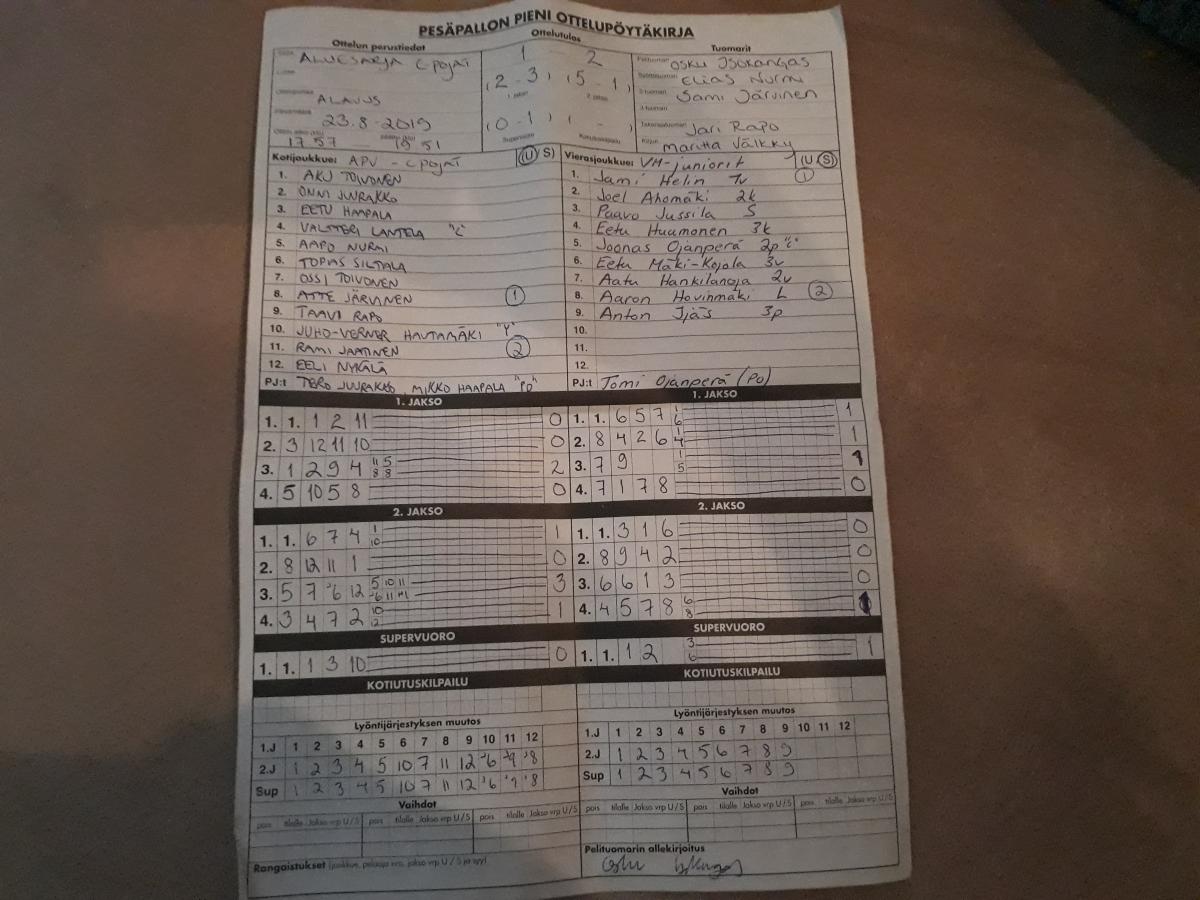 PESÄPALLON PIENI OTTELUPÖYTÄKIRJA
Ottelun perustiedot
Ottelutulos
Tuomarit
ALUESARJA C-POJAT
ALAVUS
23.8-2019
17 57 — 19 51
1 - 2
(2 - 3) (5 - 1)
(0 - 1) ( - )
OSKU ISOKANGAS
ELIAS NURMI
SAMI JÄRVINEN
JARI RAPO
MARITTA VÄLKKY
Kotijoukkue: APV - C POJAT (U/S)
1. AKU TOIVONEN
2. ONNI JUURAKKO
3. EETU HAAPALA
4. VALTTERI LANTELA "C"
5. AAPO NURMI
6. TOPIAS SILTALA
7. OSSI TOIVONEN
8. ATTE JÄRVINEN 1
9. TAAVI RAPO
10. JUHO-VERNER HAUTAMÄKI "Y"
11. RAMI JAATINEN 2
12. EELI NYKÄLÄ
PJ:t TERO JUURAKKO, MIKKO HAAPALA "PO"
Vierasjoukkue: VM-juniorit (U/S)
1. Jami Helin 1v 1
2. Joel Ahomäki 2k
3. Paavo Jussila S
4. Eetu Huumonen 3k
5. Joonas Ojanperä 2p "C"
6. Eetu Mäki-Kojola 3v
7. Aatu Hankilanoja 2v
8. Aaron Hovinmäki L 2
9. Anton Ijäs 3p
10.
11.
12.
PJ:t Tomi Ojanperä (PO)
1. JAKSO
1. 1. 1 2 11 0
2. 3 12 11 10 0
3. 1 2 9 4 11 5 8 8 2
4. 5 10 5 8 0
1. JAKSO
1. 1. 6 5 7 1 6 1
2. 8 4 2 6 1 4 1
3. 7 9 1 5 1
4. 7 1 7 8 0
2. JAKSO
1. 1. 6 7 4 1 10 1
2. 8 12 11 1 0
3. 5 7 6 12 5 10 11 6 11 1 3
4. 3 4 7 2 10 12 1
2. JAKSO
1. 1. 3 1 6 0
2. 8 9 4 2 0
3. 6 6 1 3 0
4. 4 5 7 8 6 8 1
SUPERVUORO
1. 1. 1 3 10 0
SUPERVUORO
1. 1. 1 2 3 6 1
KOTIUTUSKILPAILU
KOTIUTUSKILPAILU
Lyöntijärjestyksen muutos
1.J 1 2 3 4 5 6 7 8 9 10 11 12
2.J 1 2 3 4 5 10 7 11 12 6 9 8
Sup 1 2 3 4 5 10 7 11 12 6 9 8
Lyöntijärjestyksen muutos
1.J 1 2 3 4 5 6 7 8 9 10 11 12
2.J 1 2 3 4 5 6 7 8 9
Sup 1 2 3 4 5 6 7 8 9
Vaihdot
pois tilalle Jakso vrp U/S pois tilalle Jakso vrp U/S pois tilalle Jakso vrp U/S
Vaihdot
pois tilalle Jakso vrp U/S pois tilalle Jakso vrp U/S pois tilalle Jakso vrp U/S
Rangaistukset (joukkue, pelaaja nro, jakso vrp U / S ja syy)
Pelituomarin allekirjoitus